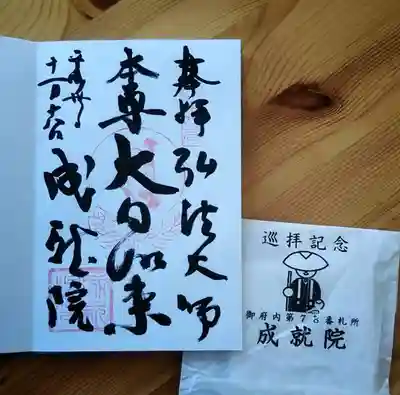 奉拝 弘法大師
本尊 大日如来
平成卅年
十一月
成就院
巡拝記念
御府内第78番札所
成就院